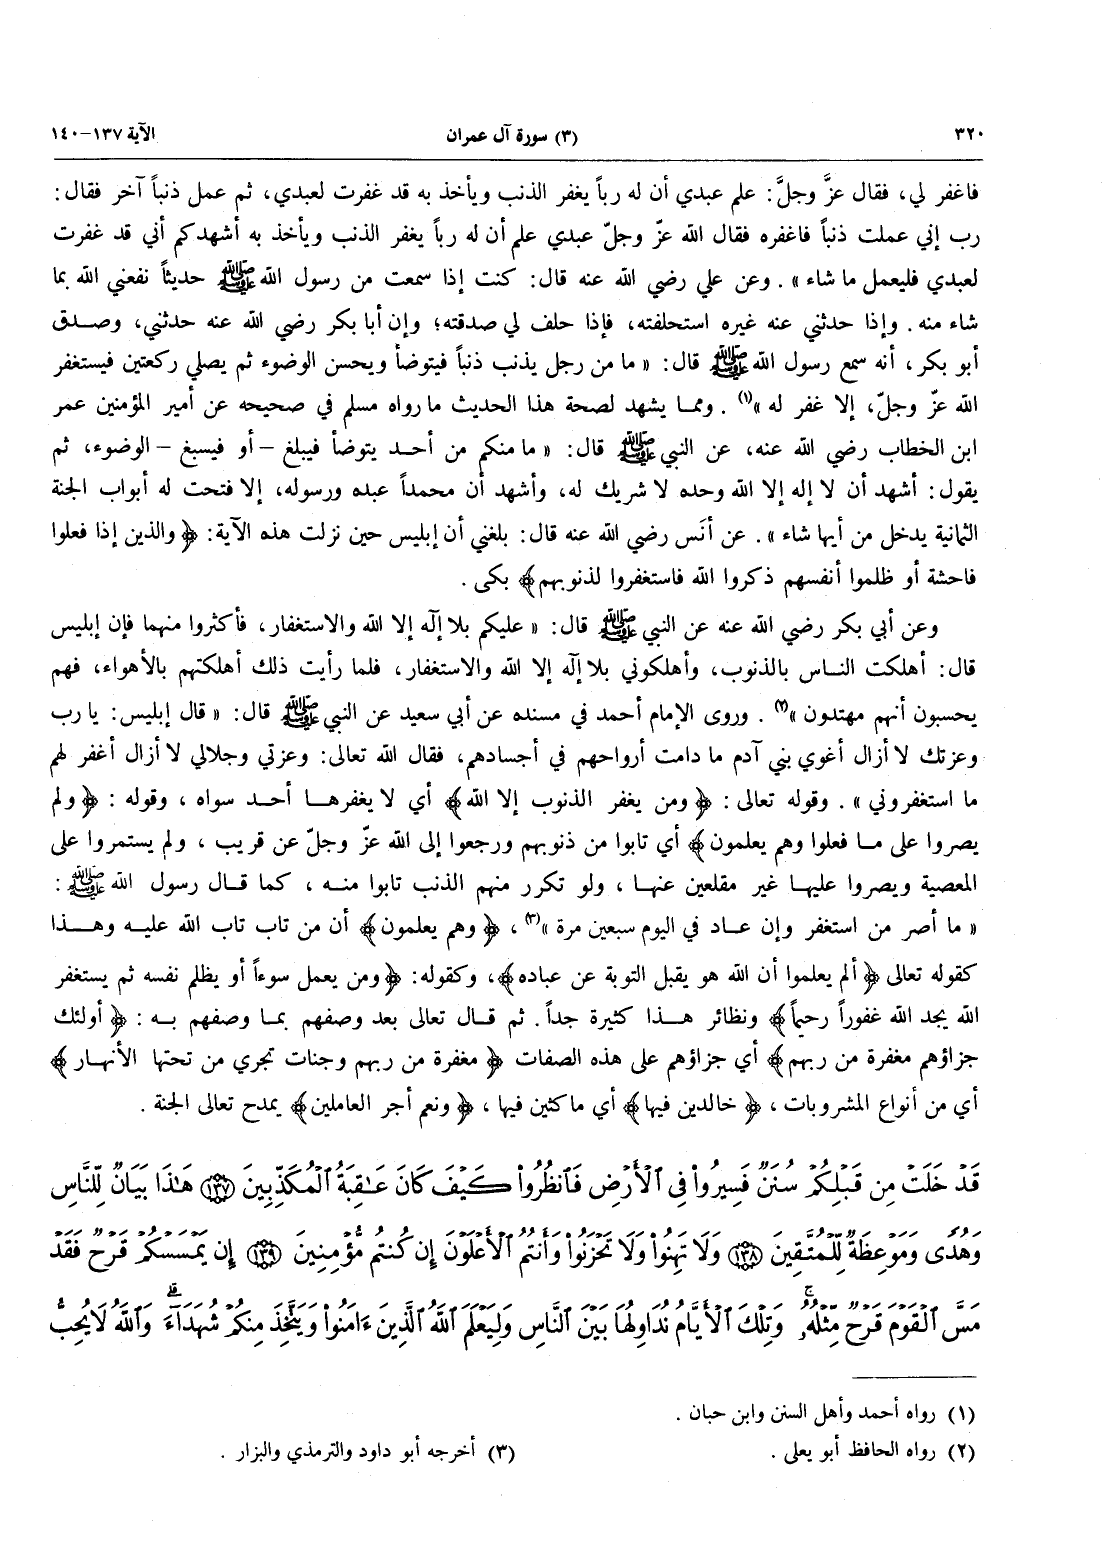 ٣٢٠ (٣) سورة آل عمران الآية ١٣٧-١٤٠
فاغفر لي، فقال عزَّ وجلَّ: علم عبدي أن له رباً يغفر الذنب ويأخذ به قد غفرت لعبدي، ثم عمل ذنباً آخر فقال:
رب إني عملت ذنباً فاغفره فقال الله عزّ وجلّ عبدي علم أن له رباً يغفر الذنب ويأخذ به أشهدكم أني قد غفرت
لعبدي فليعمل ما شاء». وعن علي رضي الله عنه قال: كنت إذا سمعت من رسول الله ﷺ حديثاً نفعني الله بما
شاء منه. وإذا حدثني عنه غيره استحلفته، فإذا حلف لي صدقته؛ وإن أبا بكر رضي الله عنه حدثني، وصدق
أبو بكر، أنه سمع رسول الله ﷺ قال: « ما من رجل يذنب ذنباً فيتوضأ ويحسن الوضوء ثم يصلي ركعتين فيستغفر
الله عزّ وجلّ، إلا غفر له »(١). ومما يشهد لصحة هذا الحديث ما رواه مسلم في صحيحه عن أمير المؤمنين عمر
ابن الخطاب رضي الله عنه، عن النبي ﷺ قال: « ما منكم من أحد يتوضأ فيبلغ - أو فيسبغ - الوضوء، ثم
يقول: أشهد أن لا إله إلا الله وحده لا شريك له، وأشهد أن محمداً عبده ورسوله، إلا فتحت له أبواب الجنة
الثمانية يدخل من أيها شاء ». عن أنَس رضي الله عنه قال: بلغني أن إبليس حين نزلت هذه الآية: ﴿ والذين إذا فعلوا
فاحشة أو ظلموا أنفسهم ذكروا الله فاستغفروا لذنوبهم﴾ بكى.
وعن أبي بكر رضي الله عنه عن النبي ﷺ قال: « عليكم بلا إلٓه إلا الله والاستغفار، فأكثروا منهما فإن إبليس
قال: أهلكت الناس بالذنوب، وأهلكوني بلا إلٓه إلا الله والاستغفار، فلما رأيت ذلك أهلكتهم بالأهواء، فهم
يحسبون أنهم مهتدون »(٢). وروى الإمام أحمد في مسنده عن أبي سعيد عن النبي ﷺ قال: « قال إبليس: يا رب
وعزتك لا أزال أغوي بني آدم ما دامت أرواحهم في أجسادهم، فقال الله تعالى: وعزتي وجلالي لا أزال أغفر لهم
ما استغفروني ». وقوله تعالى: ﴿ ومن يغفر الذنوب إلا الله﴾ أي لا يغفرها أحد سواه، وقوله: ﴿ ولم
يصروا على ما فعلوا وهم يعلمون﴾ أي تابوا من ذنوبهم ورجعوا إلى الله عزّ وجلّ عن قريب، ولم يستمروا على
المعصية ويصروا عليها غير مقلعين عنها، ولو تكرر منهم الذنب تابوا منه، كما قال رسول الله ﷺ:
« ما أصر من استغفر وإن عاد في اليوم سبعين مرة »(٣)، ﴿ وهم يعلمون﴾ أن من تاب تاب الله عليه وهذا
كقوله تعالى ﴿ ألم يعلموا أن الله هو يقبل التوبة عن عباده﴾، وكقوله: ﴿ومن يعمل سوءاً أو يظلم نفسه ثم يستغفر
الله يجد الله غفوراً رحيماً﴾ ونظائر هذا كثيرة جداً. ثم قال تعالى بعد وصفهم بما وصفهم به: ﴿ أولئك
جزاؤهم مغفرة من ربهم﴾ أي جزاؤهم على هذه الصفات ﴿ مغفرة من ربهم وجنات تجري من تحتها الأنهار﴾
أي من أنواع المشروبات، ﴿ خالدين فيها﴾ أي ماكثين فيها، ﴿ ونعم أجر العاملين﴾ يمدح تعالى الجنة.
قَدْ خَلَتْ مِن قَبْلِكُمْ سُنَنٌ فَسِيرُوا۟ فِى ٱلْأَرْضِ فَٱنظُرُوا۟ كَيْفَ كَانَ عَـٰقِبَةُ ٱلْمُكَذِّبِينَ ﴿١٣٧﴾ هَـٰذَا بَيَانٌ لِّلنَّاسِ
وَهُدًى وَمَوْعِظَةٌ لِّلْمُتَّقِينَ ﴿١٣٨﴾ وَلَا تَهِنُوا۟ وَلَا تَحْزَنُوا۟ وَأَنتُمُ ٱلْأَعْلَوْنَ إِن كُنتُم مُّؤْمِنِينَ ﴿١٣٩﴾ إِن يَمْسَسْكُمْ قَرْحٌ فَقَدْ
مَسَّ ٱلْقَوْمَ قَرْحٌ مِّثْلُهُۥ ۚ وَتِلْكَ ٱلْأَيَّامُ نُدَاوِلُهَا بَيْنَ ٱلنَّاسِ وَلِيَعْلَمَ ٱللَّهُ ٱلَّذِينَ ءَامَنُوا۟ وَيَتَّخِذَ مِنكُمْ شُهَدَآءَ ۗ وَٱللَّهُ لَا يُحِبُّ
(١) رواه أحمد وأهل السنن وابن حبان.
(٢) رواه الحافظ أبو يعلى. (٣) أخرجه أبو داود والترمذي والبزار.